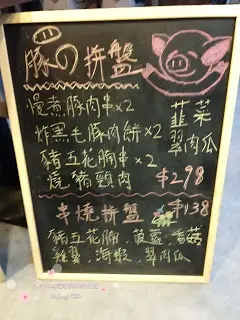 豚の拼盤
慢煮豚肉串×2
韮菜
炸黑毛豚肉餅×2
翠肉瓜
豬五花腩串×2
燒豬頸肉
$298
串燒拼盤
$138
豬五花腩、黃薑、香菇
雞翼、海蝦、翠肉瓜